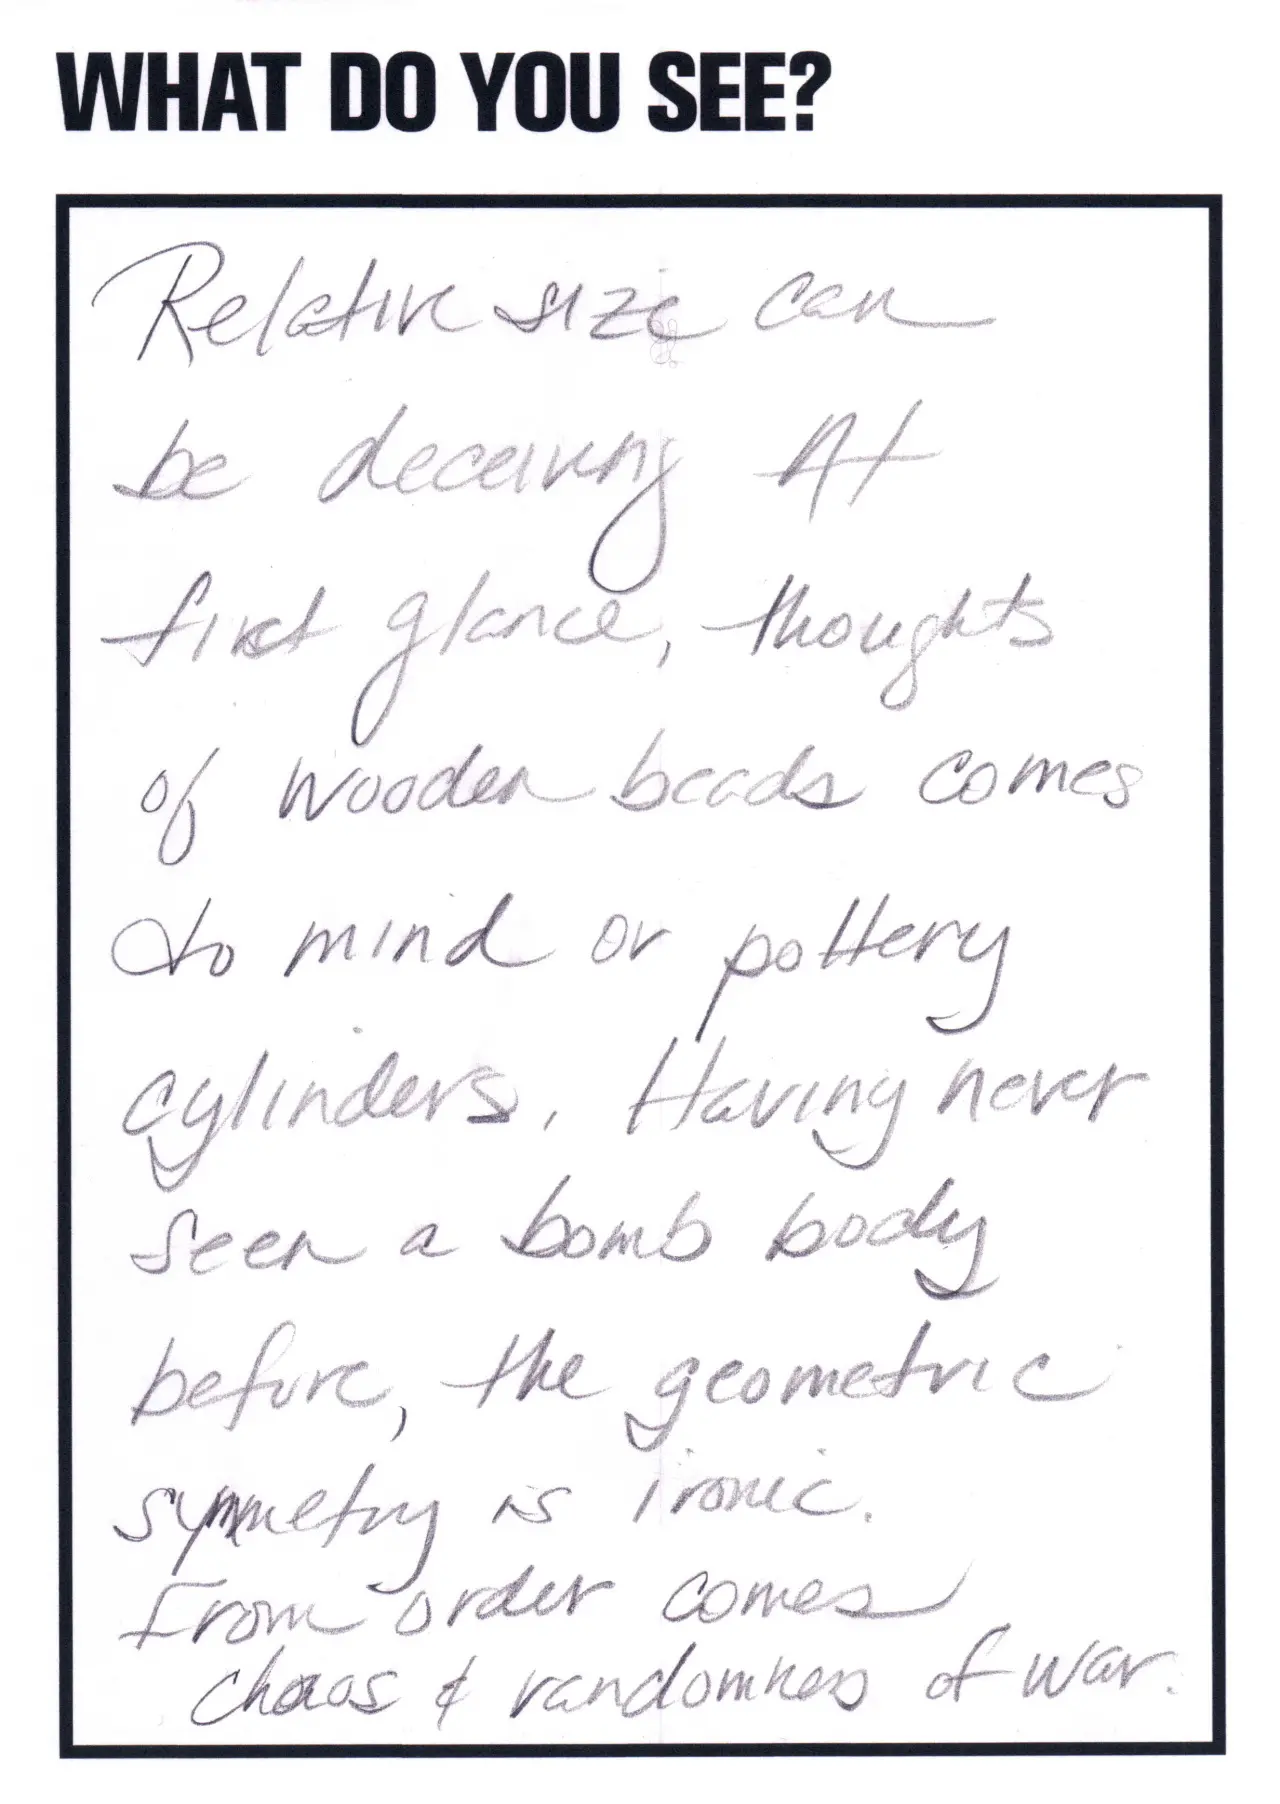 WHAT DO YOU SEE?
Relative size can
be deceiving At
first glance, thoughts
of wooden beads comes
to mind or pottery
cylinders. Having never
seen a bomb body
before, the geometric
symmetry is ironic.
From order comes
chaos & randomness of war.